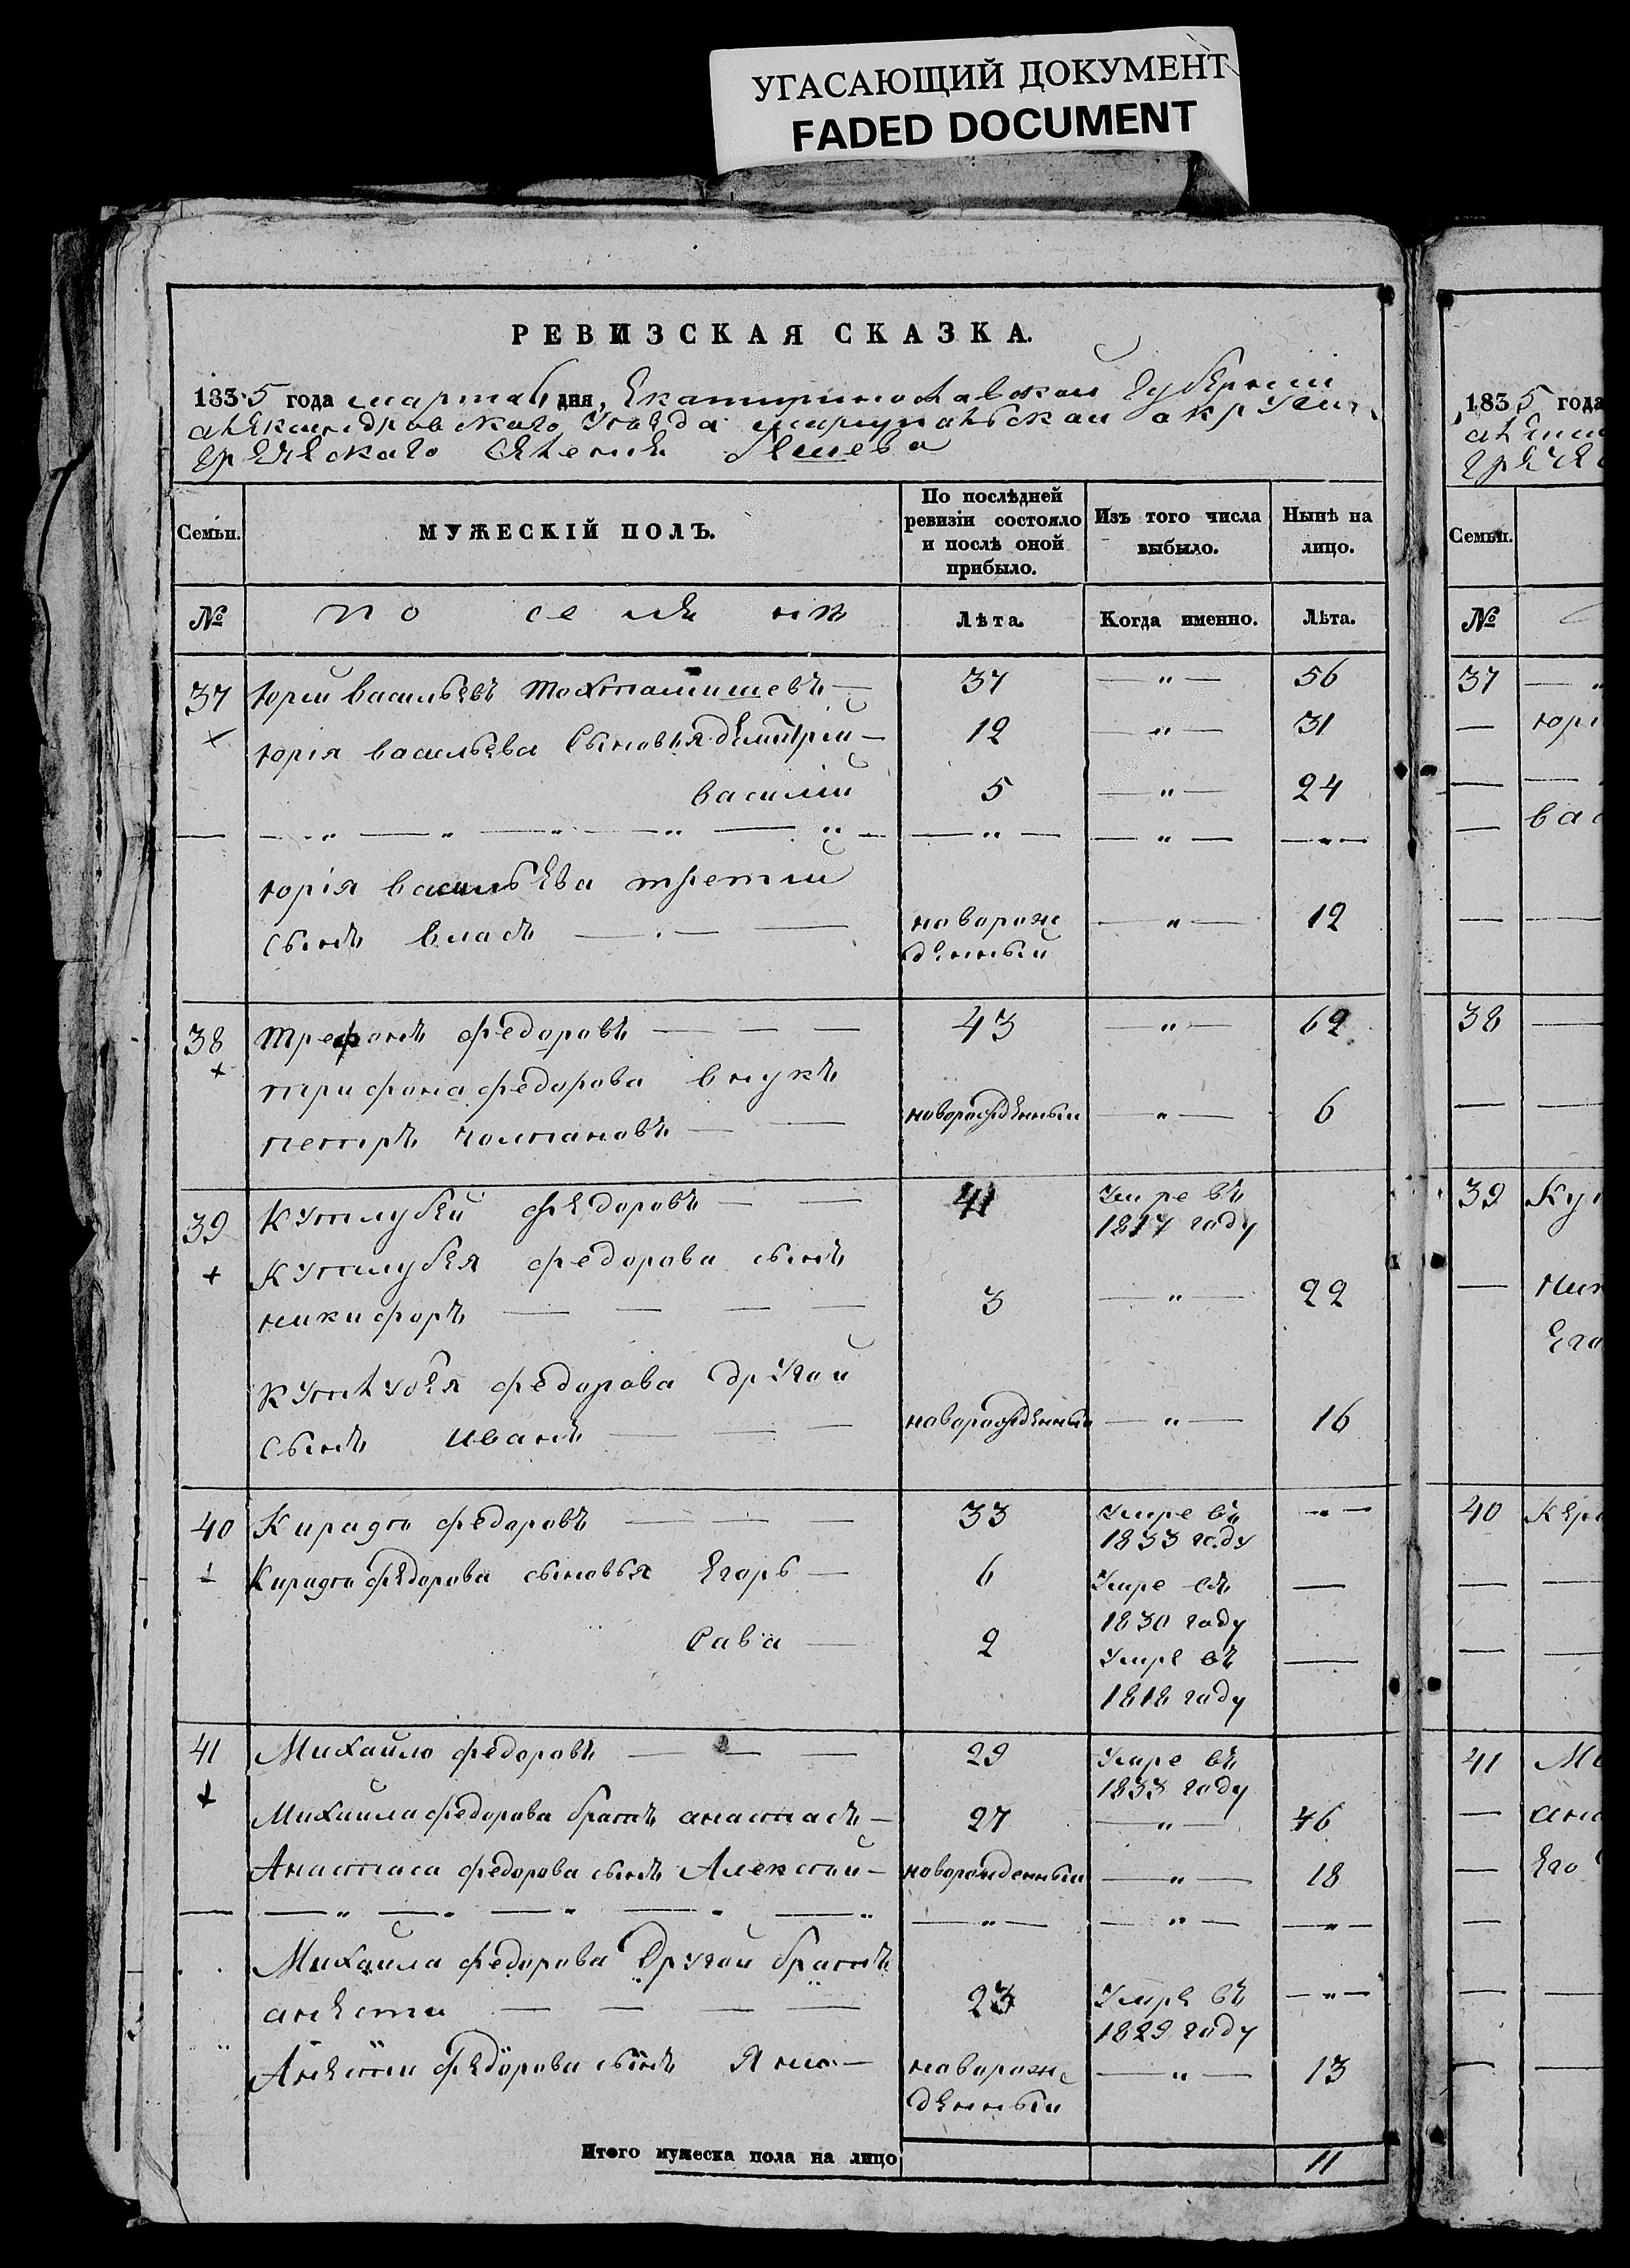 УГАСАЮЩИЙ ДОКУМЕНТ
FADED DOCUMENT
РЕВИЗСКАЯ СКАЗКА.
1835 года марта 6 дня, Екатиринославской Губерніи
александровскаго Уезда мариупальской округи
греческаго селеніе Бешева
Семьи. МУЖЕСКІЙ ПОЛЪ. По послѣдней ревизіи состояло и послѣ оной прибыло. Изъ того числа выбыло. Нынѣ на лицо.
№ Лѣта. Когда именно. Лѣта.
37 Юрій васильевъ тохтамишевъ — 37 — " — 56
Юрія васильева Сыновья Дмитрій — 12 — " — 31
василій 5 — " — 24
Юрія васильева третій
сынъ власъ — новорожденный — " — 12
38 трефонъ федоровъ — 43 — " — 62
трифона федорова внукъ
петръ чолпановъ — новорожденный — " — 6
39 Кутлубей федоровъ — 41 Умре въ 1817 году
Кутлубея федорова сынъ
никифоръ — 3 — " — 22
Кутлубея федорова другой
сынъ иванъ — новорожденный — " — 16
40 федоровъ — 33 Умре въ 1833 году — " —
федорова сыновья Егоръ — 6 Умре въ 1830 году —
Сава — 2 Умре въ 1818 году —
41 Михайло федоровъ — 29 Умре въ 1833 году
Михайла федорова братъ анастасъ — 27 — " — 46
Анастаса федорова сынъ Алексей — новорожденный — " — 18
Михайла федорова Другой братъ
анести — 23 Умре въ 1829 году — " —
Анести федорова сынъ Яни — новорожденный — " — 13
Итого мужеска пола на лицо 11
1835 года
Семьи.
№
37
38
39
40
41